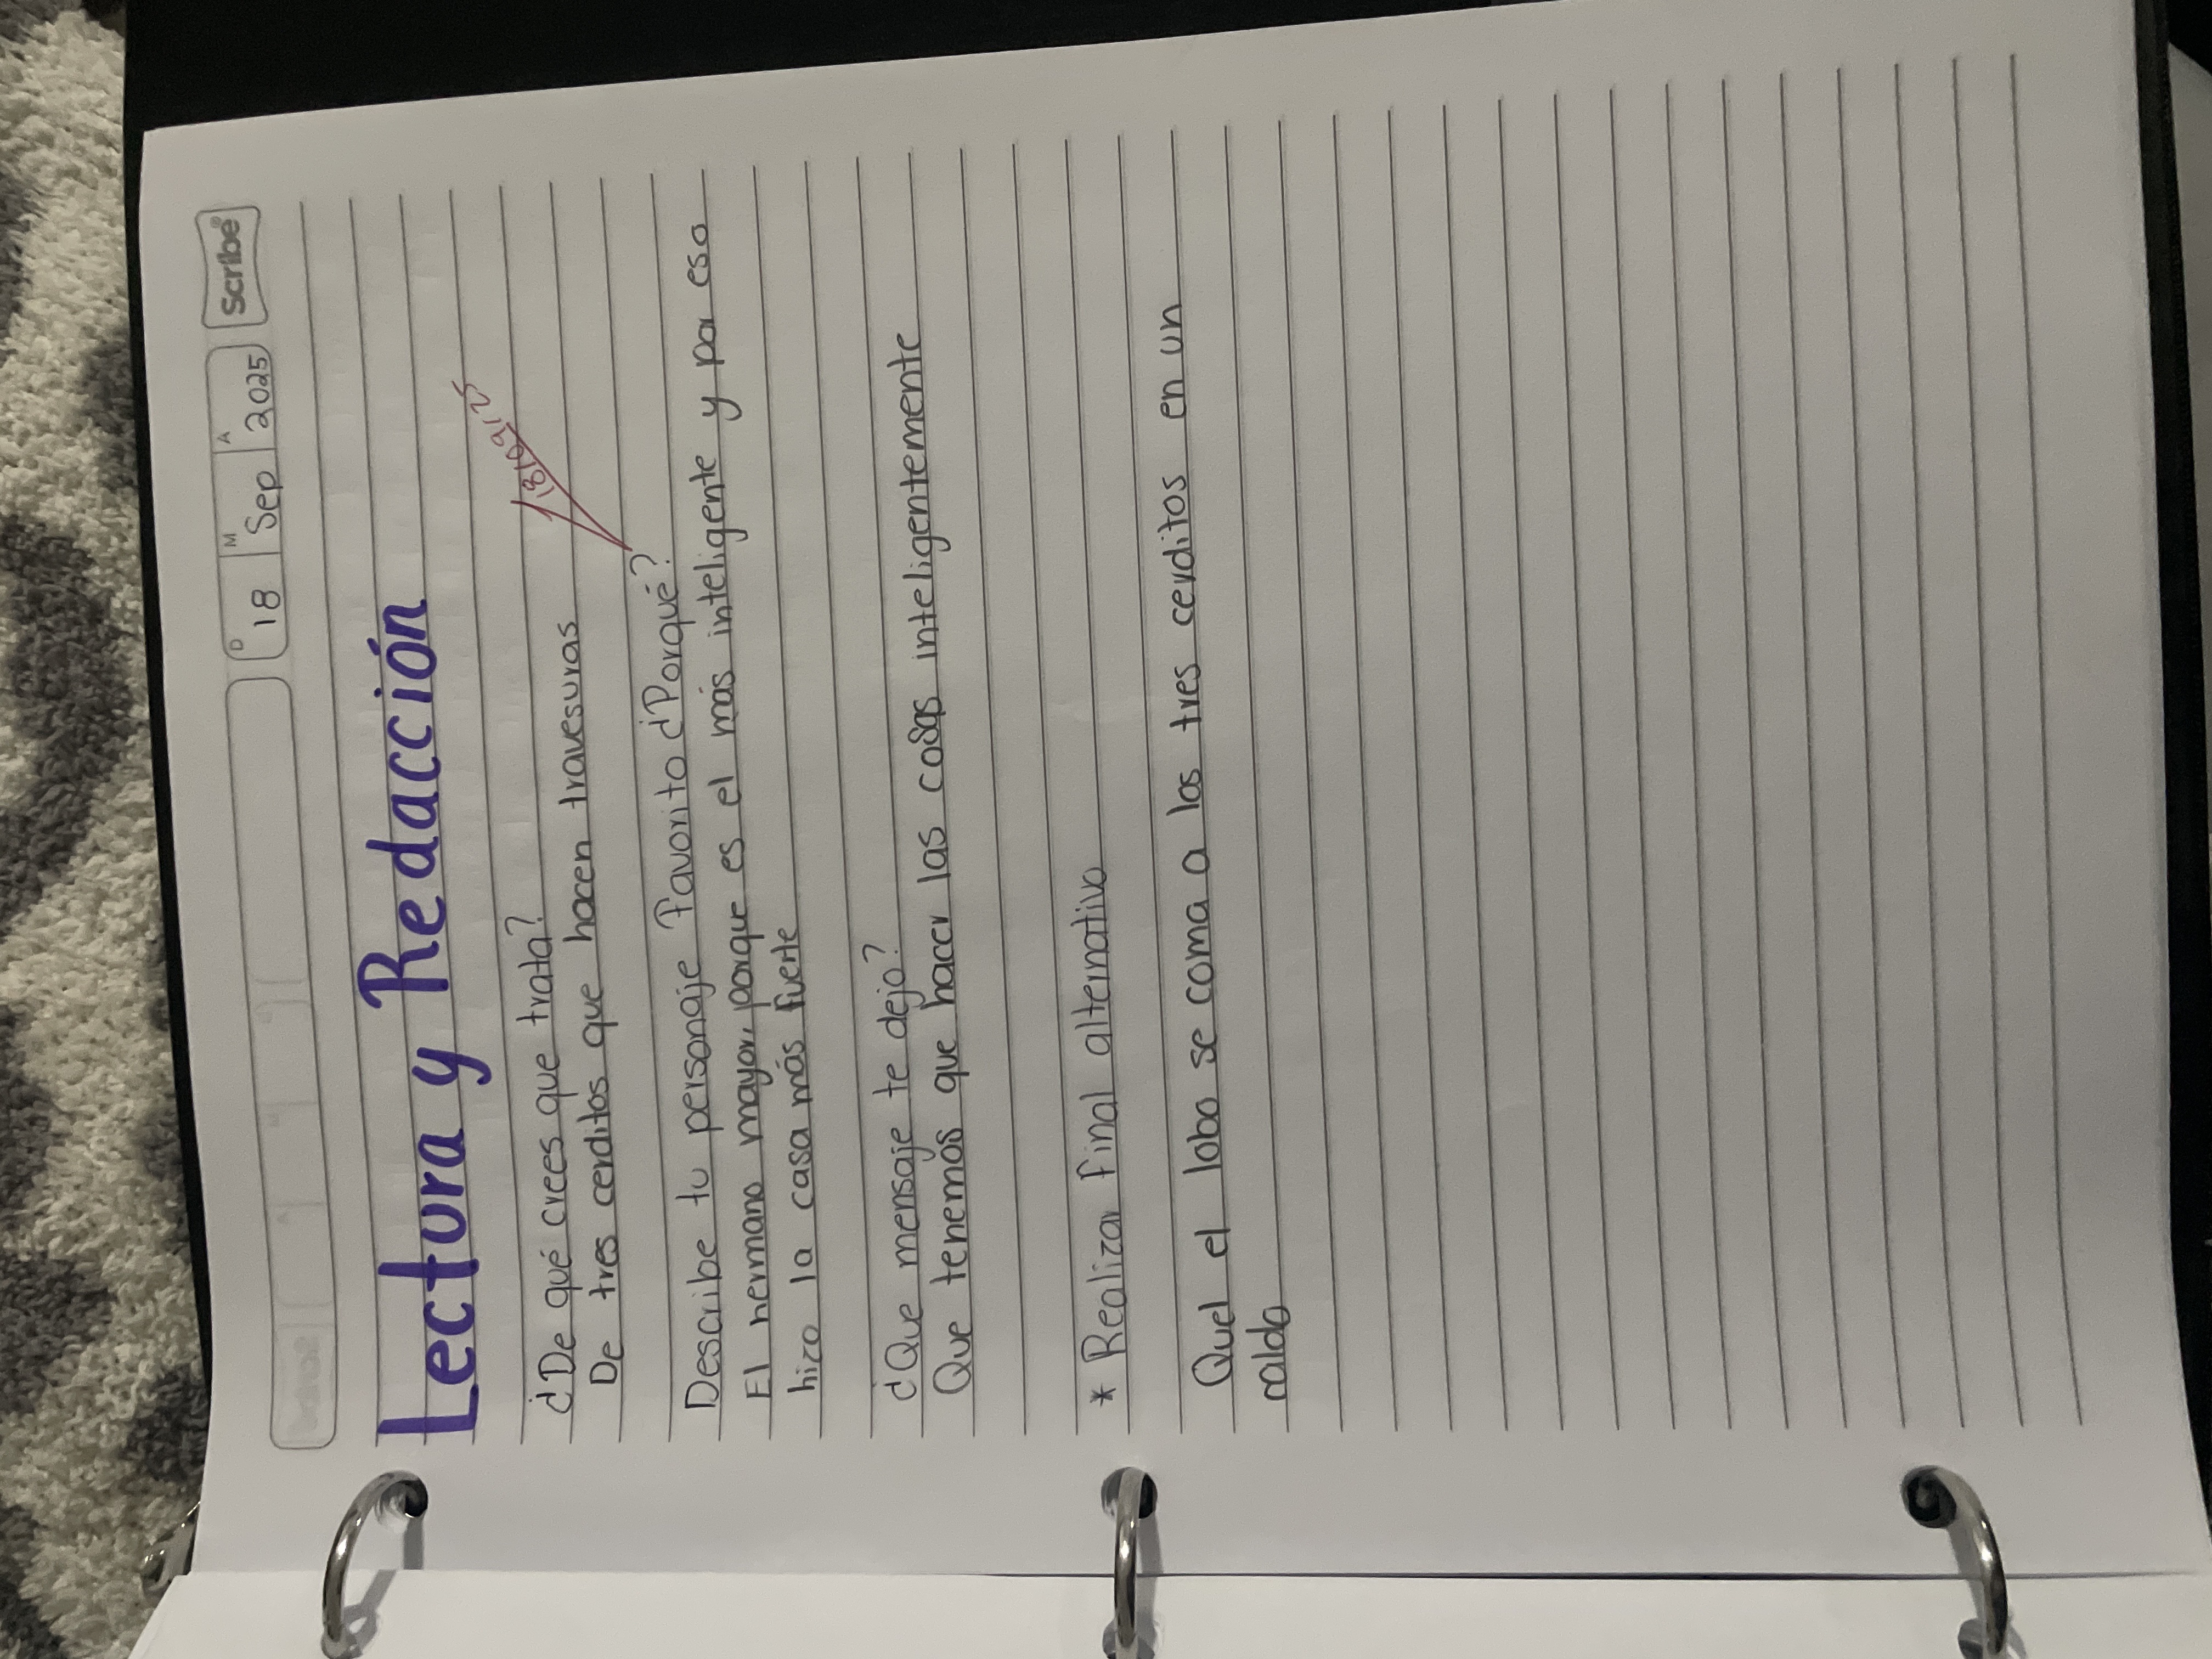 Scribe
D M A
18 Sep 2025
Lectura y Redacción
¿De qué crees que trata?
De tres cerditos que hacen travesuras
Describe tu personaje favorito ¿Porqué?
El hermano mayor, porque es el más inteligente y por eso
hizo la casa más fuerte
¿Que mensaje te dejo?
Que tenemos que hacer las cosas inteligentemente
* Realizar final alternativo
Quel el lobo se coma a los tres cerditos en un
caldo